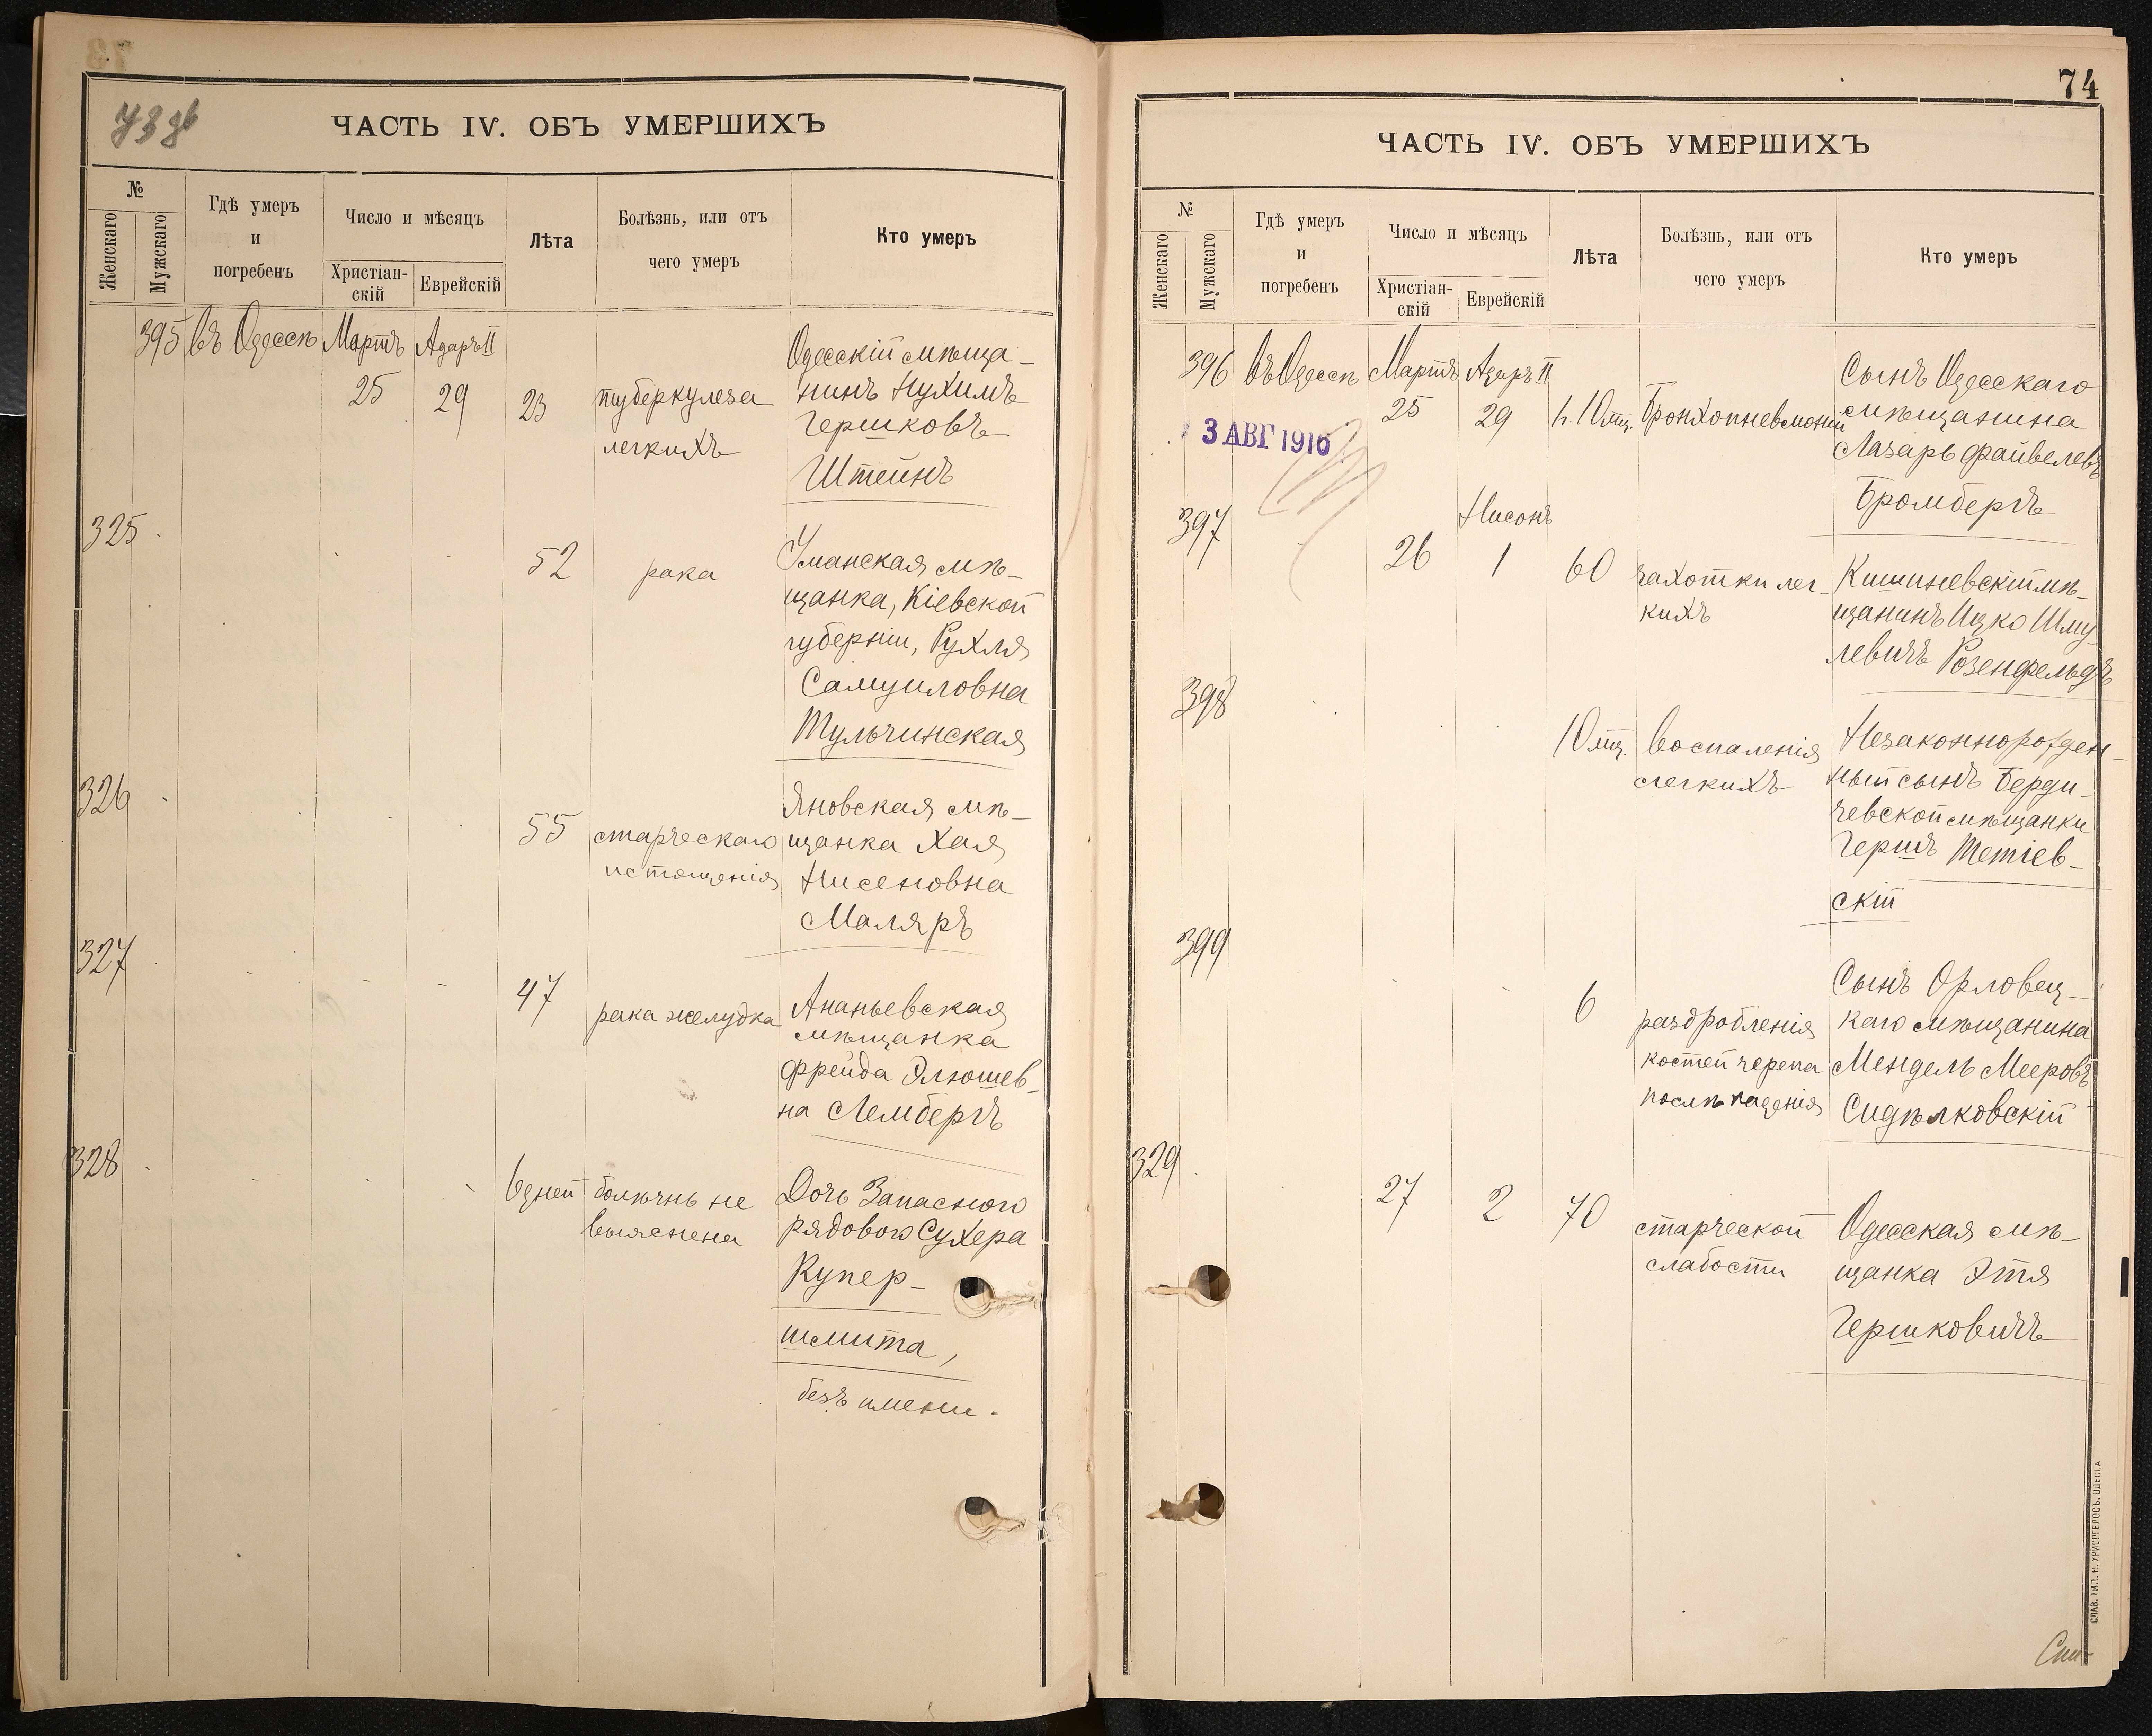 73 об
ЧАСТЬ IV. ОБЪ УМЕРШИХЪ
№
Женскаго
Мужскаго
Гдѣ умеръ
и
погребенъ
Число и мѣсяцъ
Христіан-
скій
Еврейскій
Лѣта
Болѣзнь, или отъ
чего умеръ
Кто умеръ
395 въ Одессѣ Мартъ Адаръ II
25 29 23 туберкулеза
легкихъ
Одесскій мѣща-
нинъ Нухимъ
Гершковъ
Штейнъ
325
52 рака
Уманская мѣ-
щанка, Кіевской
губерніи, Рухля
Самуиловна
Тульчинская
326
55 старческаго
истощенія
Яновская мѣ-
щанка Хая
Нисеновна
Маляръ
327
47 рака желудка
Ананьевская
мѣщанка
Фрейда Элюшев-
на Лембергъ
328
6 дней болѣзнь не
выяснена
Дочь Запасного
рядового Сухера
Купер-
шмита,
безъ имени.
74
ЧАСТЬ IV. ОБЪ УМЕРШИХЪ
№
Женскаго
Мужскаго
Гдѣ умеръ
и
погребенъ
Число и мѣсяцъ
Христіан-
скій
Еврейскій
Лѣта
Болѣзнь, или отъ
чего умеръ
Кто умеръ
396 въ Одессѣ Мартъ Адаръ II
25 29 1г. 10 мц. Бронхопневмоніи
3 АВГ 1916
Сынъ Одесскаго
мѣщанина
Лазарь Файвелевъ
Бромбергъ
397
Нисонъ
26 1 60 чахотки лег-
кихъ
Кишиневскій мѣ-
щанинъ Ицко Шму-
левичъ Розенфельдъ
398
10 мц. воспаленія
легкихъ
Незаконнорожден-
ный сынъ Берди-
чевской мѣщанки
Гершъ Тетіев-
скій
399
6 раздробленія
костей черепа
послѣ паденія
Сынъ Орловец-
каго мѣщанина
Мендель Мееровъ
Сидѣлковскій
329
27 2 70 старческой
слабости
Одесская мѣ-
щанка Этя
Гершковичъ